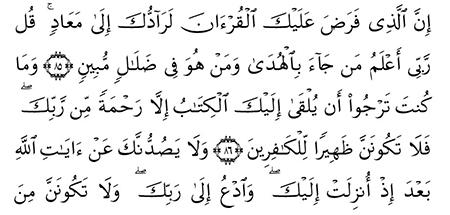 إِنَّ ٱلَّذِى فَرَضَ عَلَيْكَ ٱلْقُرْءَانَ لَرَآدُّكَ إِلَىٰ مَعَادٍ ۚ قُل
رَّبِّىٓ أَعْلَمُ مَن جَآءَ بِٱلْهُدَىٰ وَمَنْ هُوَ فِى ضَلَـٰلٍ مُّبِينٍ ﴿٨٥﴾ وَمَا
كُنتَ تَرْجُوٓا۟ أَن يُلْقَىٰٓ إِلَيْكَ ٱلْكِتَـٰبُ إِلَّا رَحْمَةً مِّن رَّبِّكَ ۖ
فَلَا تَكُونَنَّ ظَهِيرًا لِّلْكَـٰفِرِينَ ﴿٨٦﴾ وَلَا يَصُدُّنَّكَ عَنْ ءَايَـٰتِ ٱللَّهِ
بَعْدَ إِذْ أُنزِلَتْ إِلَيْكَ ۖ وَٱدْعُ إِلَىٰ رَبِّكَ ۖ وَلَا تَكُونَنَّ مِنَ